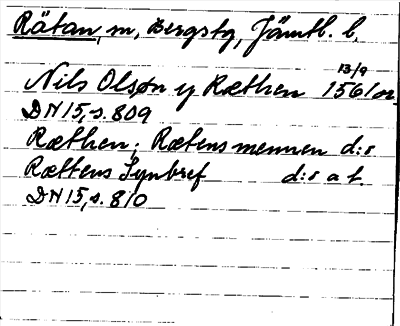 Rätan, sn, Bergstg, Jämtl. l.
13/9
Nils Olsøn y Ræthen 1561 or.
DN 15, s. 809
Ræthen; Rætens mennen d:s
Rættens Synbref d:s a f.
DN 15, s. 810